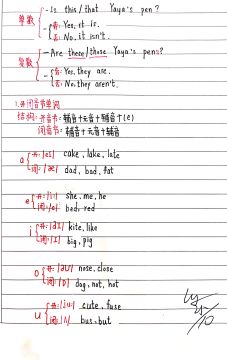 单数 - Is this / that Yaya's pen?
肯: Yes, it is.
否: No, it isn't.
复数 - Are these / those Yaya's pens?
肯: Yes, they are.
否: No, they aren't.
1. 开闭音节单词
结构: 开音节: 辅音+元音+辅音+(e)
闭音节: 辅音+元音+辅音
a 开: /eɪ/ cake, lake, late
闭: /æ/ dad, bad, fat
e 开: /i:/ she, me, he
闭: /e/ bed, red
i 开: /aɪ/ kite, like
闭: /ɪ/ big, pig
o 开: /əʊ/ nose, close
闭: /ɒ/ dog, not, hot
u 开: /ju:/ cute, fuse
闭: /ʌ/ bus, but